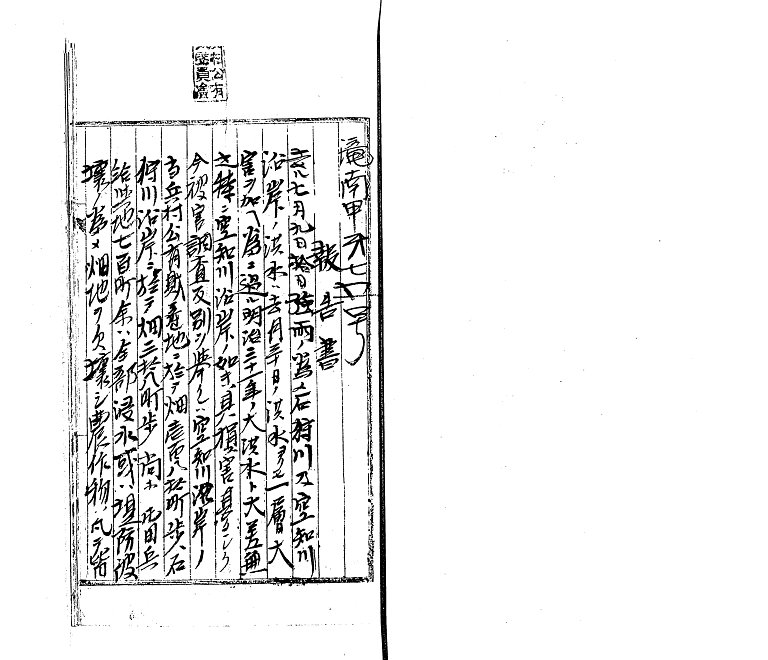 滝南甲第七四号
報告書
去ル七月九日拾日強雨ノ為メ石狩川及空知川
沿岸ノ洪水ハ去月三十日ノ洪水ヨリモ一層大
害ヲ加ヘ為ニ過ル明治三十一年ノ大洪水ト大差無
之特ニ空知川沿岸ノ如キ其損害甚シク
今被害調査反別ヲ挙クレハ空知川沿岸ノ
当兵村公有財産地ニ於テ畑 町歩、石
狩川沿岸ニ於テ畑三拾八町歩尚ホ屯田兵
給与地七百町余ハ全部浸水或ハ堤防破
壊ノ為メ畑地ヲ欠壊シ農作物ハ凡テ皆
村公有